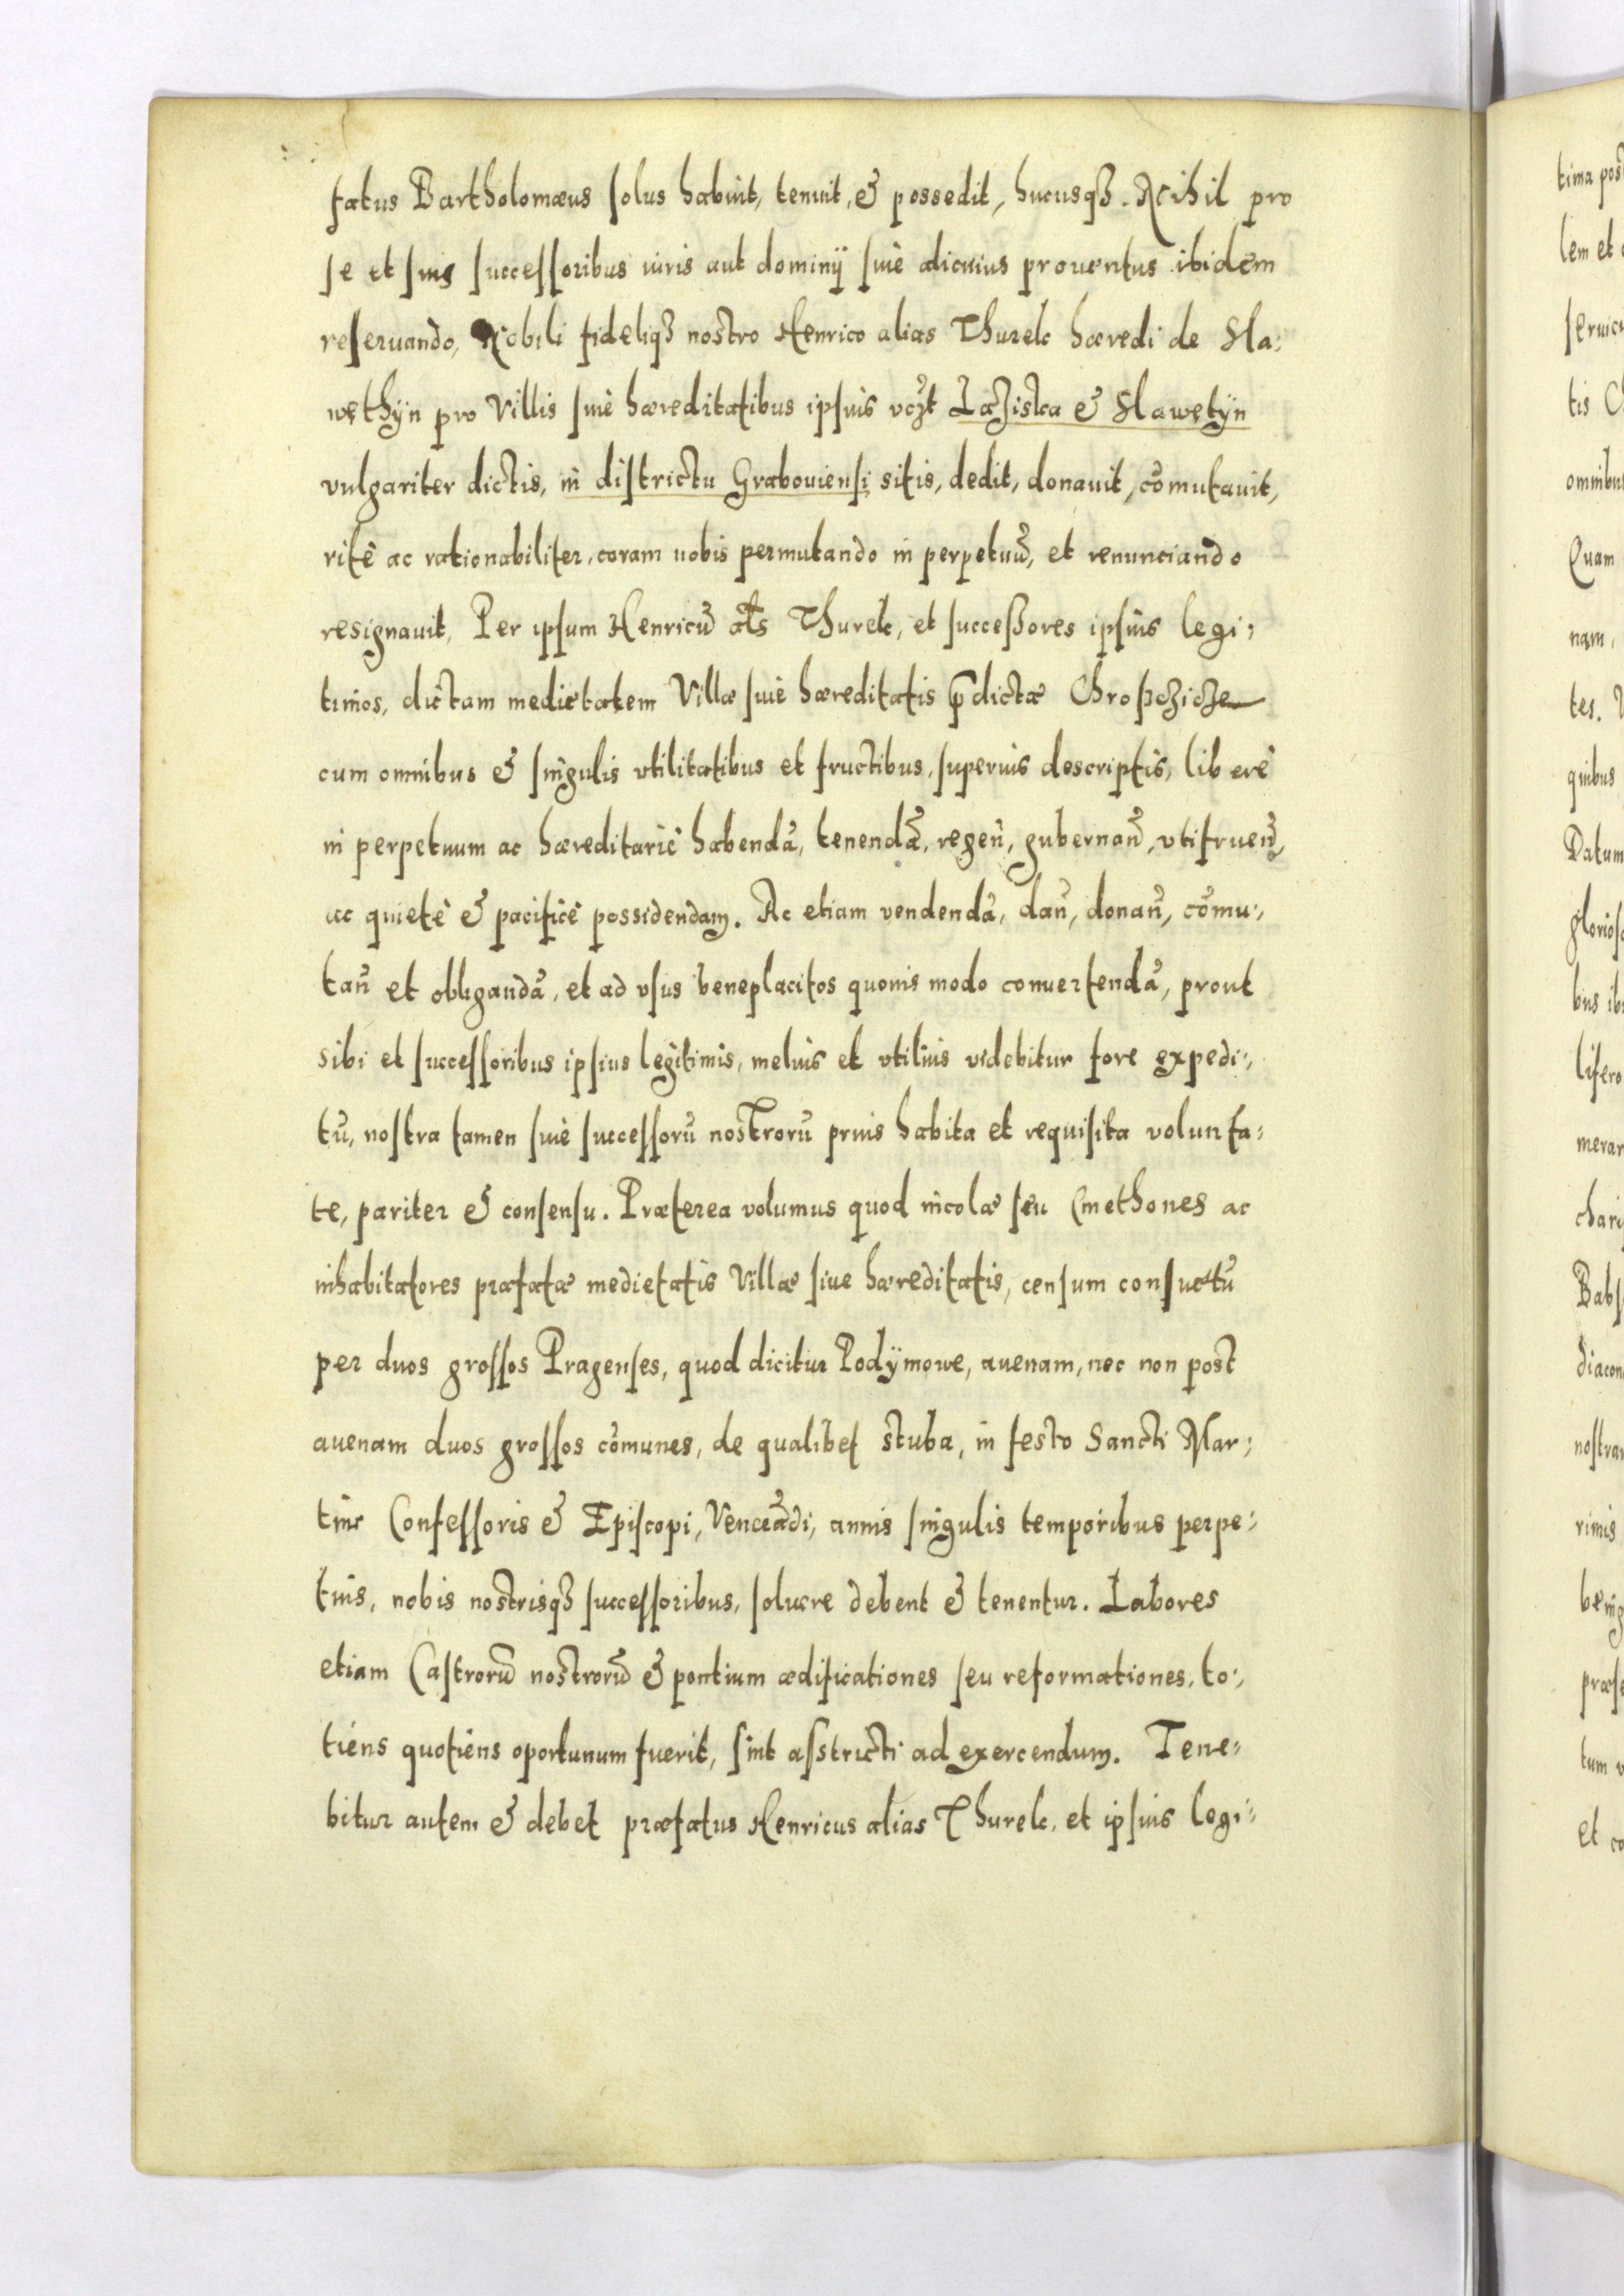 fatus Bartholomæus solus habuit, tenuit, & possedit, hucusqȝ. Nihil pro
se et suis successoribus iuris aut dominij siue alicuius prouentus ibidem
reseruando, Nobili fideliqȝ nostro Henrico alias Thurek hæredi de Sla⸗
wethÿn pro Villis siue hæreditatibus ipsius vcȝt Laziska & Slawetÿn
vulgariter dictis, in districtu Grabouiensi sitis, dedit, donauit, cōmutauit,
ritè ac rationabiliter, coram nobis permutando in perpetuū, et renunciando
resignauit, Per ipsum Henricū als Thurek, et successores ipsius legi⸗
timos, dictam medietatem Villæ siue hæreditatis p̄dictæ Chropczicze
cum omnibus & singulis vtilitatibus et fructibus, superius descriptis, liberè
in perpetuum ac hæreditariè habendā, tenendā, regeñ, gubernañ, vtifrueñ,
ac quietè & pacificè possidendam. Ac etiam vendendā, dañ, donañ, cōmu⸗
tañ et obligandā, et ad vsus beneplacitos quouis modo conuertendā, prout
sibi et successoribus ipsius legitimis, melius et vtilius videbitur fore expedi⸗
tū, nostra tamen siue successorū nostrorū prius habita et requisita volunta⸗
te, pariter & consensu. Præterea volumus quod incolæ seu Cmethones ac
inhabitatores præfatæ medietatis Villæ siue hæreditatis, censum consuetū
per duos grossos Pragenses, quod dicitur Podÿmowe, auenam, nec non post
auenam duos grossos cōmunes, de qualibet stuba, in festo Sancti Mar⸗
tini Confessoris & Episcopi, Venerādi, annis singulis temporibus perpe⸗
tuis, nobis nostrisqȝ successoribus, soluere debent & tenentur. Labores
etiam Castrorū nostrorū & pontium ædificationes seu reformationes, to⸗
tiens quotiens oportunum fuerit, sint asstricti ad exercendum. Tene⸗
bitur autem & debet præfatus Henricus alias Thurek, et ipsius legi⸗